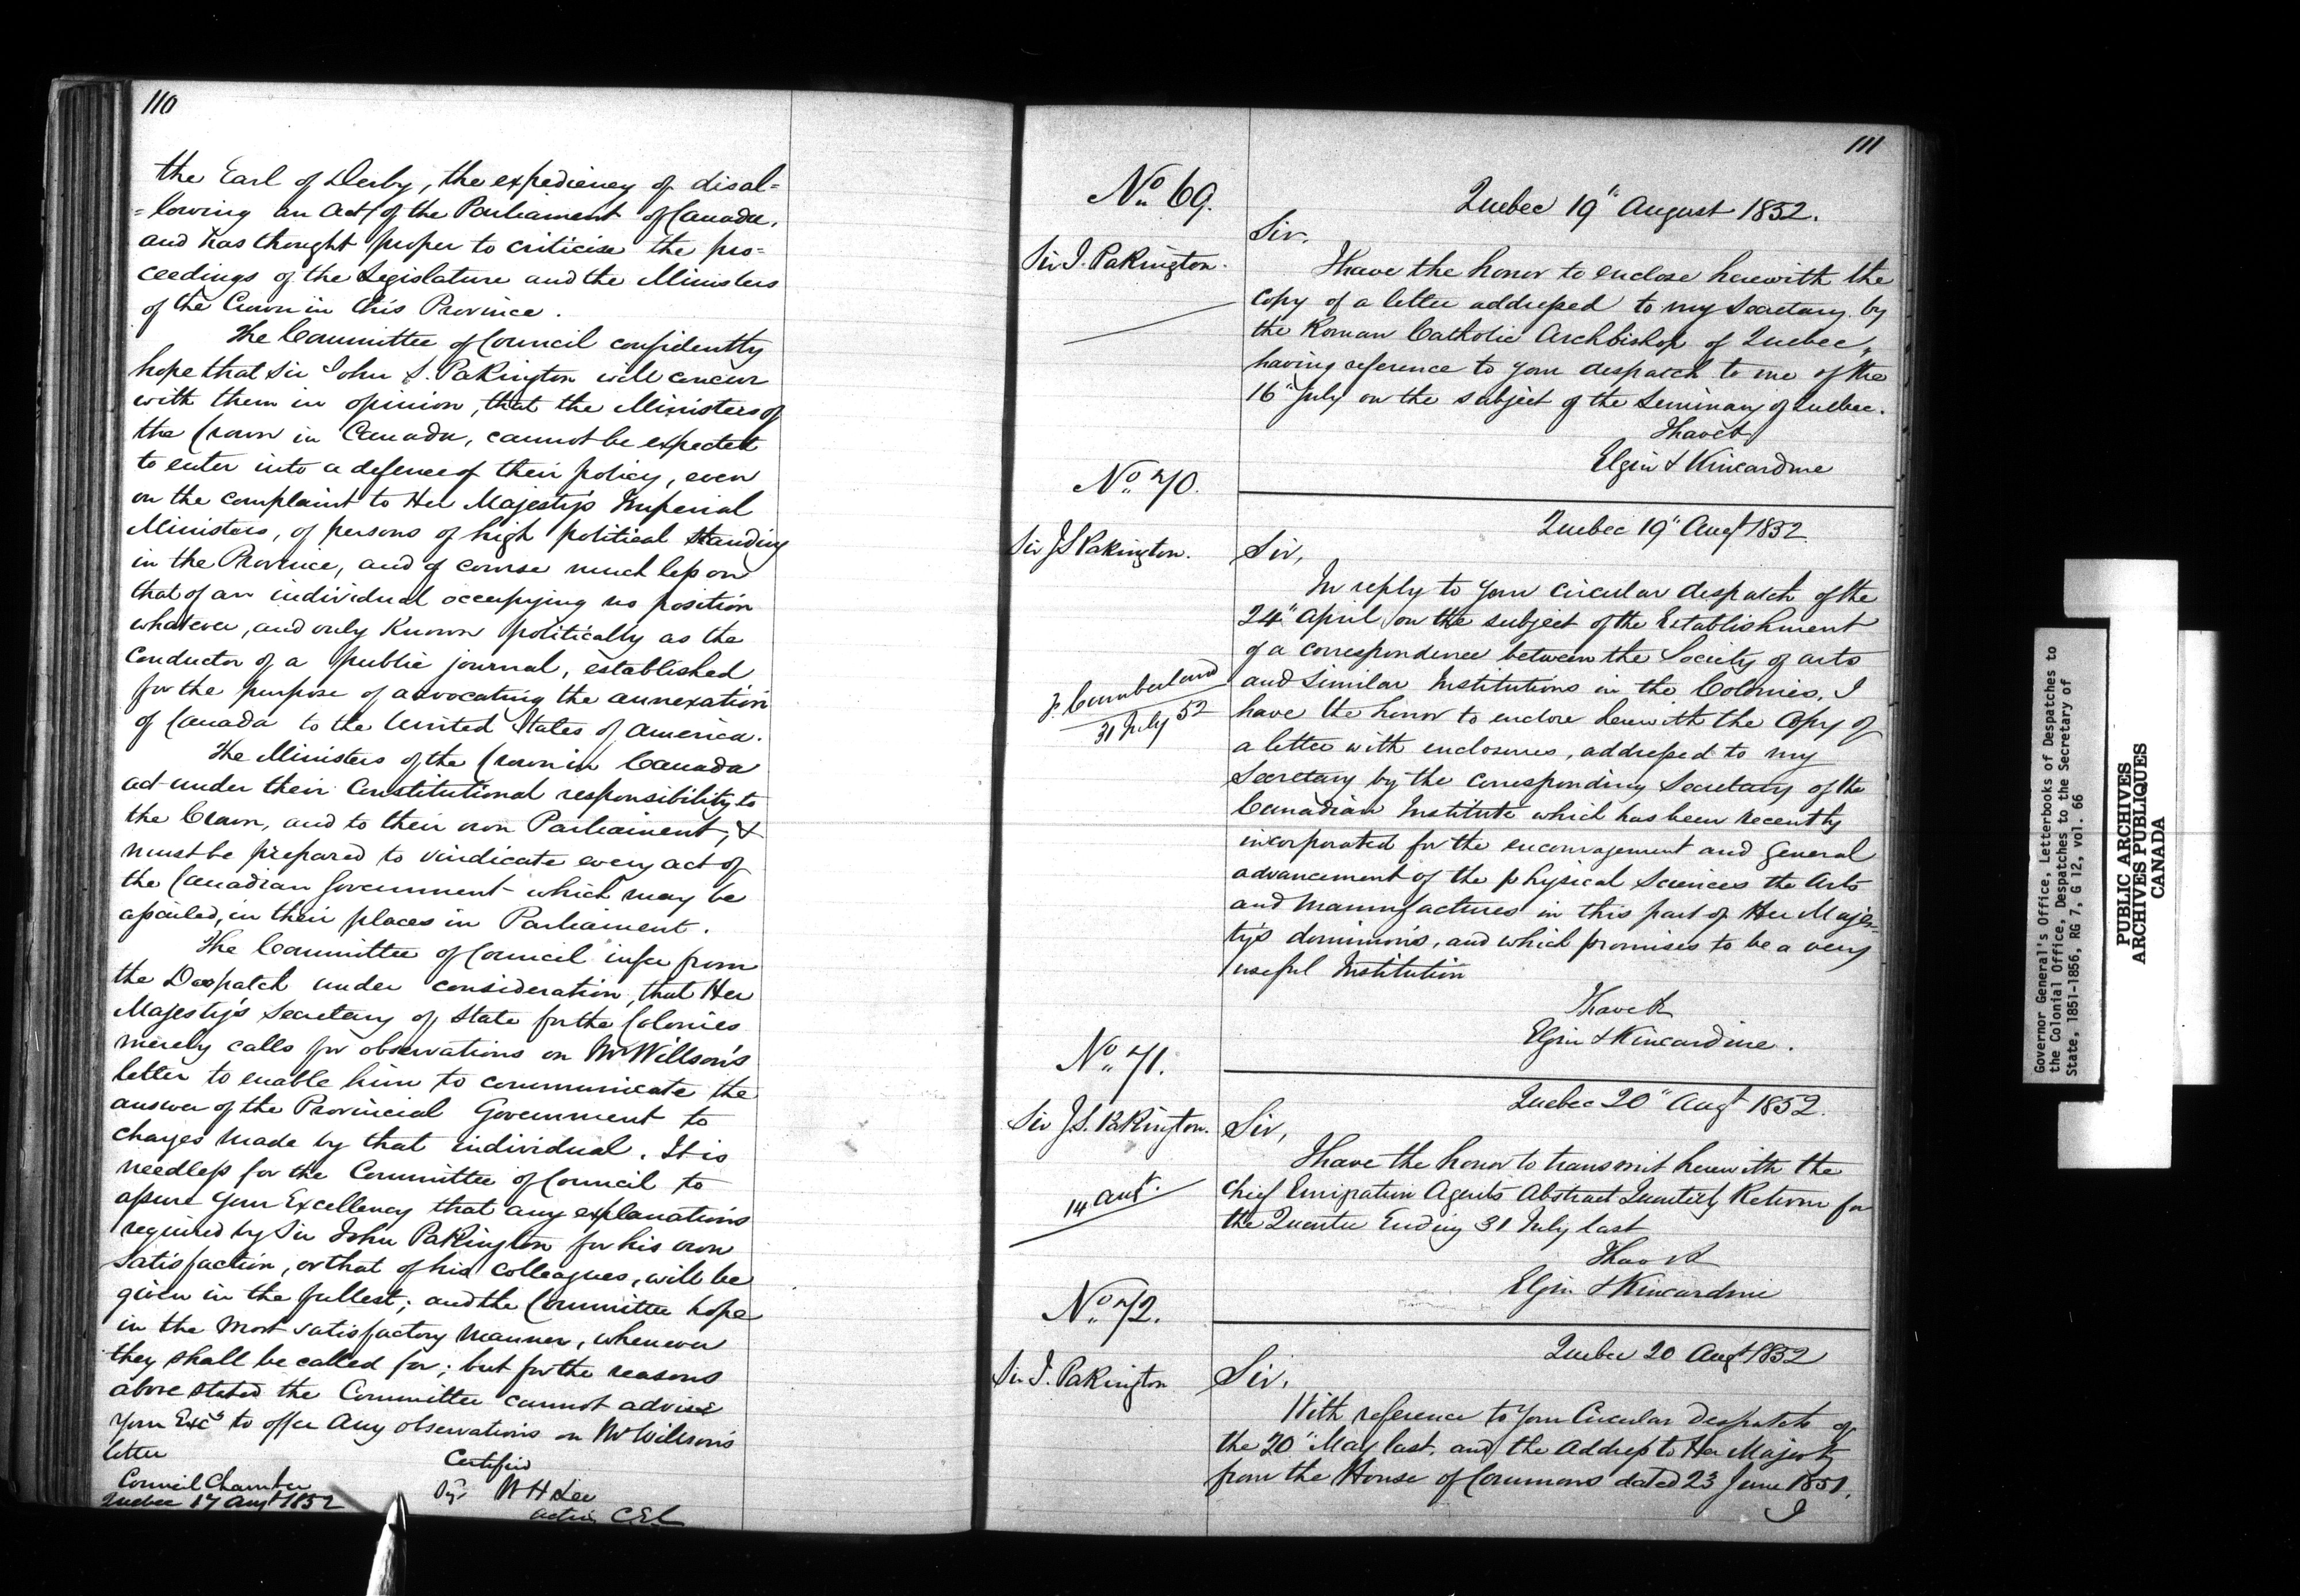 110
the Earl of Derby, the expediency of disal=
=lowing an Act of the Parliament of Canada,
and has thought proper to criticise the pro=
ceedings of the Legislature and the Ministers
of the Crown in this Province.
The Committee of Council confidently
hope that Sir John S. Pakington will concur
with them in opinion, that the Ministers of
the Crown in Canada, cannot be expected
to enter into a defence of their policy, even
on the complaint to Her Majesty's Imperial
Ministers, of persons of high political standing
in the Province, and of course much less on
that of an individual occupying no position
whatever, and only known politically as the
Conductor of a public journal, established
for the purpose of advocating the annexation
of Canada to the United States of America.
The Ministers of the Crown in Canada
act under their Constitutional responsibility to
the Crown, and to their own Parliament, &
must be prepared to vindicate every act of
the Canadian Government which may be
assailed, in their places in Parliament.
The Committee of Council infer from
the Despatch under consideration, that Her
Majesty's Secretary of State for the Colonies
merely calls for observations on Mr Willson's
letter to enable him to communicate the
answer of the Provincial Government to
charges made by that individual. It is
needless for the Committee of Council to
assure Your Excellency that any explanations
required by Sir John Pakington for his own
satisfaction, or that of his colleagues, will be
given in the fullest; and the Committee hope
in the most satisfactory manner, whenever
they shall be called for; but for the reasons
above stated the Committee cannot advise
Your Excy to offer any observations on Mr Willson's
letter
Certified
Council Chamber
W H Lee
Quebec 17 Augt 1852
Acting C.E.C.
111
No 69.
Quebec 19" August 1852.
Sir,
Sir J. Pakington.
I have the honor to enclose herewith the
Copy of a letter addressed to my Secretary by
the Roman Catholic Archbishop of Quebec,
having reference to your despatch to me of the
16" July on the subject of the Seminary of Quebec.
I have &
Elgin & Kincardine
No 70.
Quebec 19" Augt 1852.
Sir J S Pakington.
Sir,
In reply to your circular despatch of the
24" April, on the subject of the Establishment
of a correspondence between the Society of arts
F. Cumberland
31 July 52
and similar Institutions in the Colonies, I
have the honor to enclose herewith the Copy of
a letter with enclosures, addressed to my
Secretary by the Corresponding Secretary of the
Canadian Institute which has been recently
incorporated for the encouragement and general
advancement of the physical Sciences the Arts
and Manufactures in this part of Her Majes=
ty's dominions, and which promises to be a very
useful Institution
I have &
Elgin & Kincardine.
No 71.
Quebec 20" Augt 1852.
Sir J.S. Pakington.
Sir,
I have the honor to transmit herewith the
14 Augt.
Chief Emigration Agents Abstract Quarterly Return for
the Quarter Ending 31 July last
I have &
Elgin & Kincardine
No 72.
Quebec 20 Augt 1852
Sir J. Pakington
Sir,
With reference to Your Circular Despatch of
the 20" May last, and the Address to Her Majesty
from the House of Commons dated 23 June 1851,
I
Governor General's Office, Letterbooks of Despatches to
the Colonial Office, Despatches to the Secretary of
State, 1851-1856, RG 7, G 12, vol. 66
PUBLIC ARCHIVES
ARCHIVES PUBLIQUES
CANADA